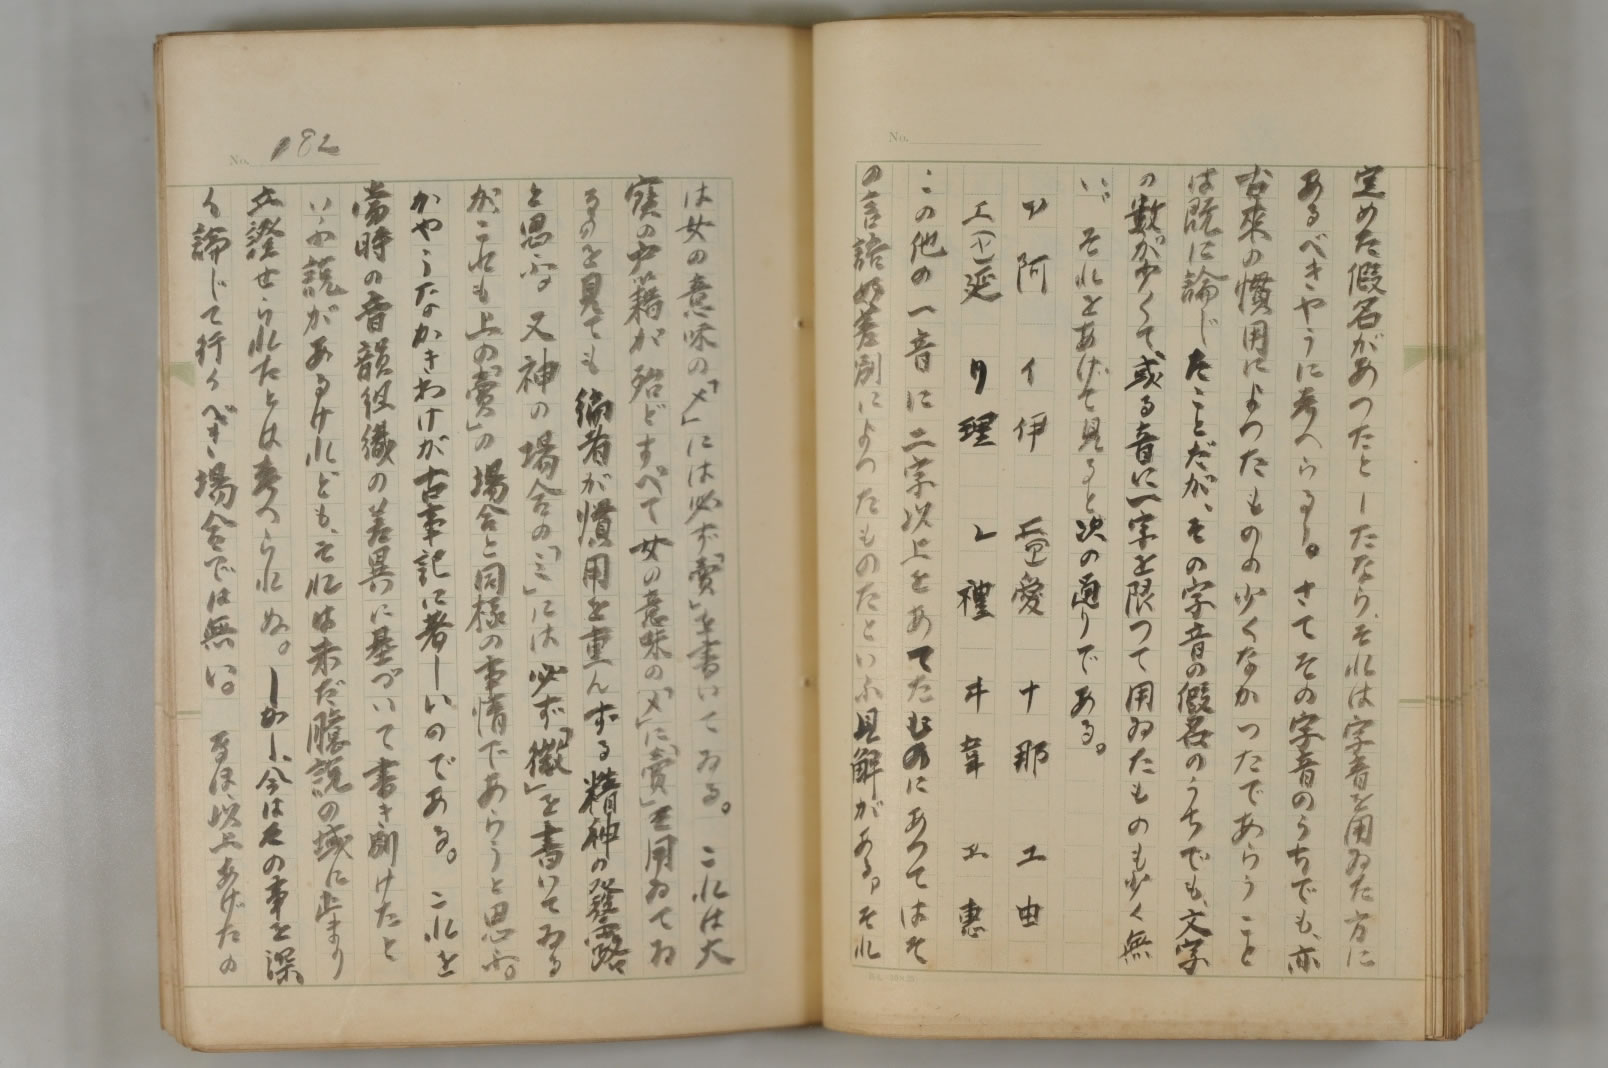 No.
定めた假名があつたとしたなら、それは字音を用ゐた方に
あるべきやうに考へらる〻。さてその字音のうちでも、亦
古來の慣用によつたものの少くなかつたであらうこと
は既に論じたことだが、その字音の假名のうちでも、文字
の數が少くて或る音に一字を限つて用ゐたものも少く無
い。それをあげて見ると次の通りである。
ア阿 イ伊 愛 ナ那 エ由
延 リ理 レ禮 ヰ韋 ヱ惠
この他の一音に二字以上をあてたものにあつてはそ
の言語の差別によつたものだといふ見解がある。それ
No. 182
は女の意味の「メ」には必ず「賣」を書いてゐる。これは大
寶の戸籍が殆どすべて女の意味の「メ」に「賣」を用ゐてゐ
るのを見ても編者が慣用を重んずる精神の發露
と思ふ。又神の場合の「ミ」には必ず「微」を書いてゐる
が、これも上の「賣」の場合と同樣の事情であらうと思ふ。
かやうなかきわけが古事記に著しいのである。これを
當時の音韻組織の差異に基づいて書き別けたと
いふ説があるけれども、それは未だ臆説の域に止まり
立證せられたとは考へられぬ。しかし、今はその事を深
く論じて行くべき場合では無い。なほ、以上あげたの